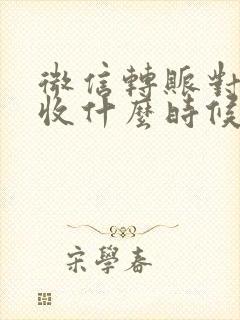 微信轉賬對
收什麼時候
宋學春